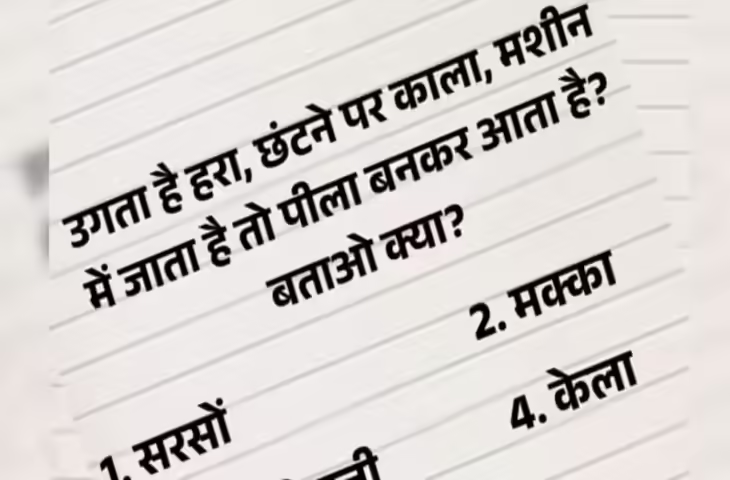 उगता है हरा, छंटने पर काला, मशीन
में जाता है तो पीला बनकर आता है?
बताओ क्या?
2. मक्का
1. सरसों
4. केला